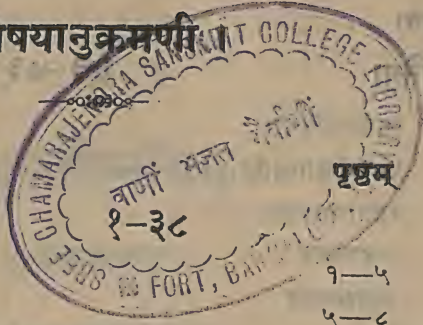 षयानुक्रमणी ।
SREE CHAMARAJENDRA SANSKRIT COLLEGE LIBRARY
FORT,
वाणीं भजत
पृष्ठम्
१–३८
१—५
५—८